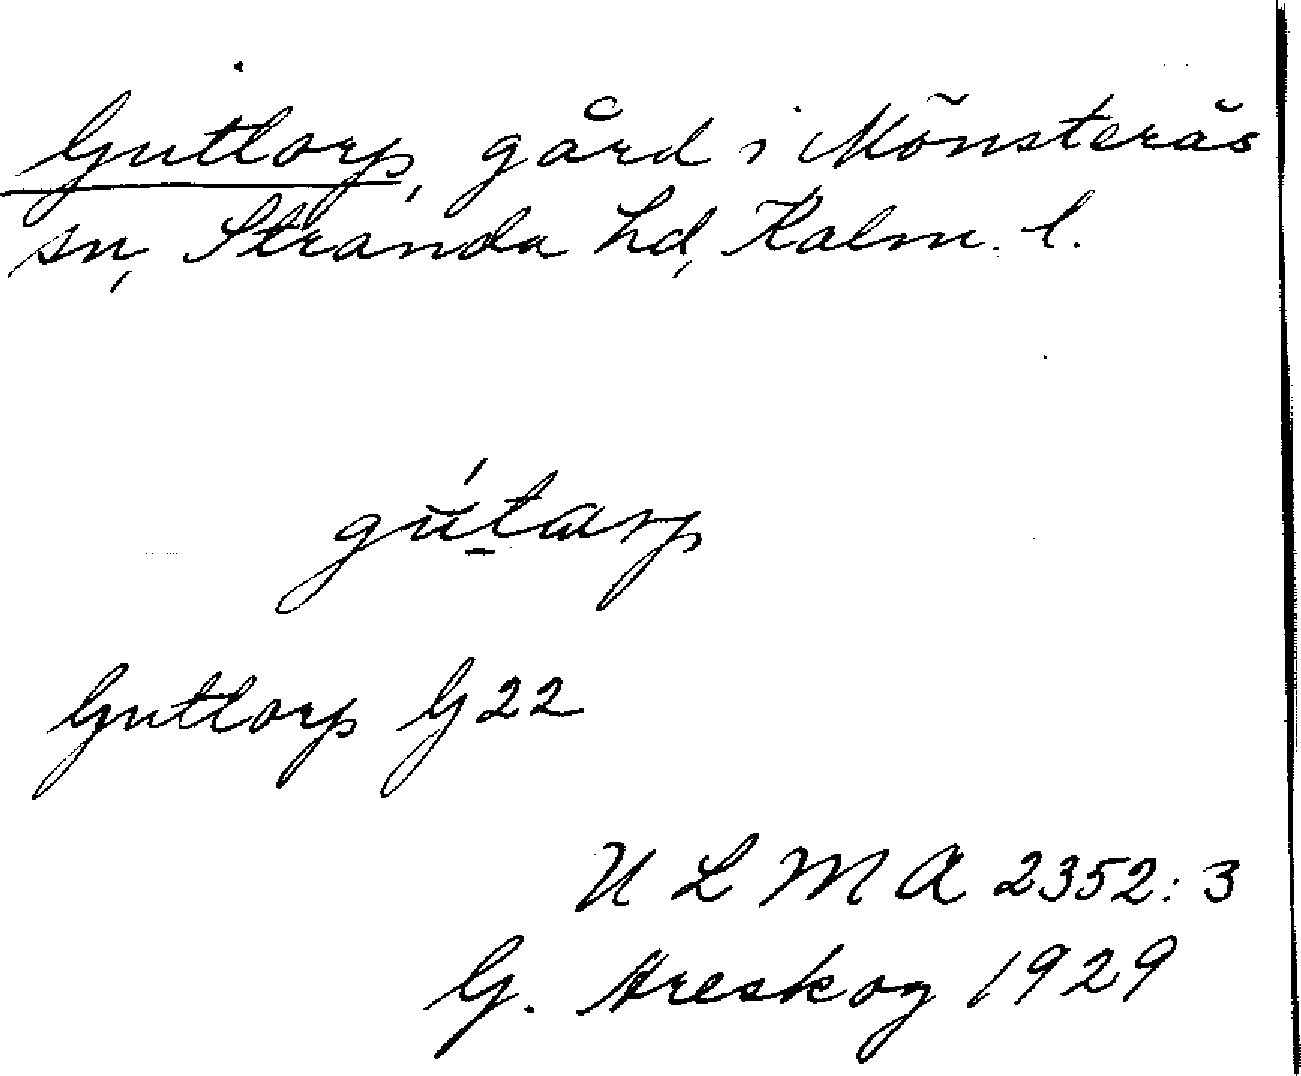 Guttorp, gård i Mönsterås
sn, Stranda hd, Kalm. l.
gútarp
Guttorp G 22
U L M A 2352:3
G. Areskog 1929